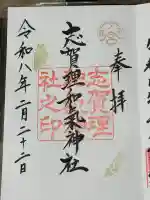 奉拝
志賀理和氣神社
令和八年二月二十二日
志賀理
社之印